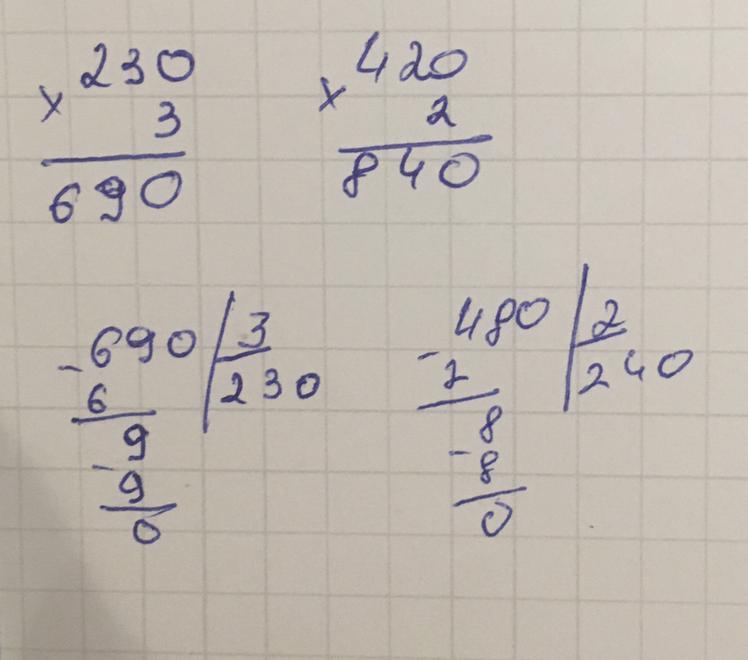 230
× 3
690
420
× 2
840
690 3
- 6 230
9
- 9
0
480 2
- 2 240
8
- 8
0